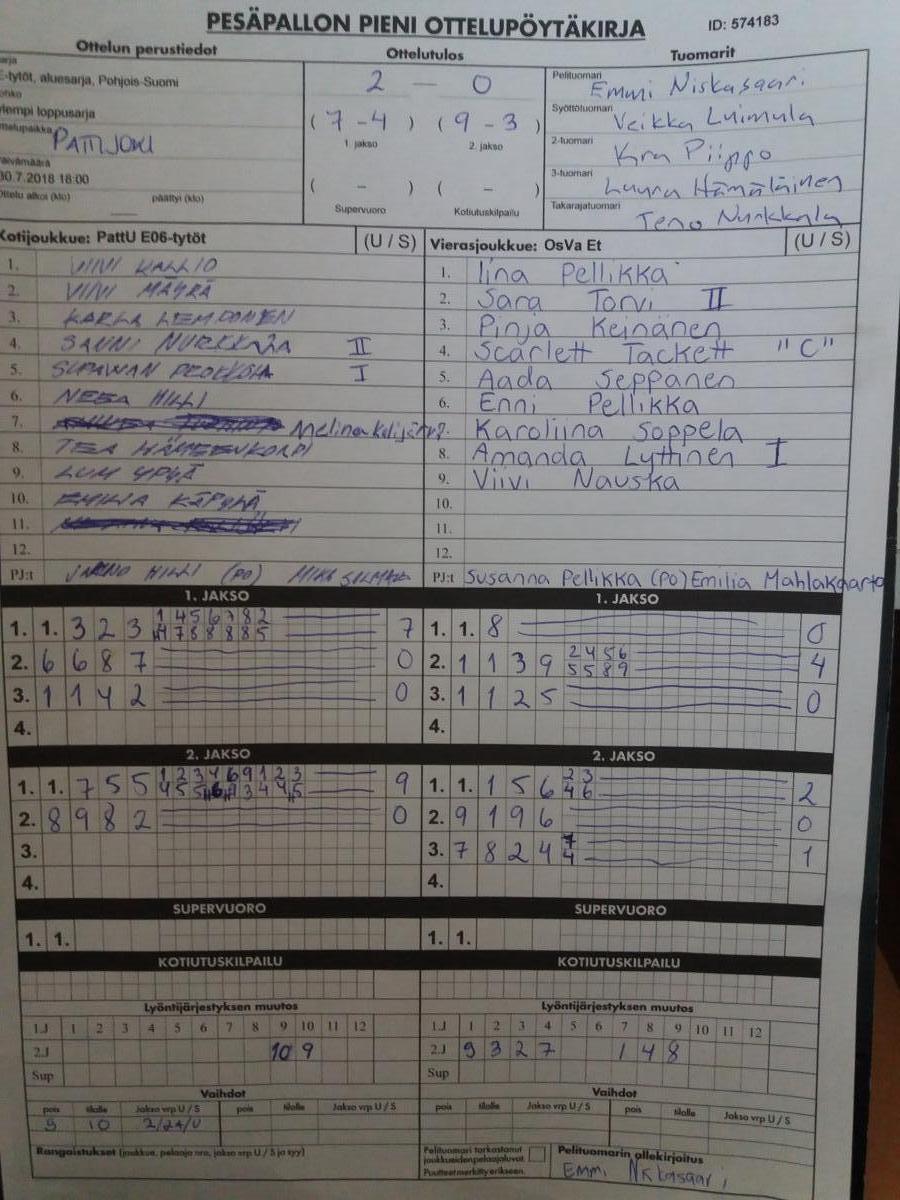 PESÄPALLON PIENI OTTELUPÖYTÄKIRJA ID: 574183
Ottelun perustiedot Ottelutulos Tuomarit
E-tytöt, aluesarja, Pohjois-Suomi
2 — 0
Pelituomari Emmi Niskasaari
Ylempi loppusarja
(7 - 4) (9 - 3)
1. jakso 2. jakso
Syöttötuomari Veikka Luimula
PATTIJOKI
2-tuomari Piippo
30.7.2018 18:00
( - ) ( - )
3-tuomari Laura Hämäläinen
päättyi (klo)
Supervuoro Kotiutuskilpailu
Takarajatuomari Nurkkala
Kotijoukkue: PattU E06-tytöt (U / S) Vierasjoukkue: OsVa Et (U / S)
1. VIIVI KALLIO 1. Iina Pellikka
2. VIIVI MÄYRÄ 2. Sara Torvi II
3. KARLA 3. Pinja Keinänen
4. SANNI NURKKALA II 4. Scarlett Tackett "C"
5. I 5. Aada Seppanen
6. NEEA HILLI 6. Enni Pellikka
7. Melina 7. Karoliina Soppela
8. TEA HÄMEENKORPI 8. Amanda Lyttinen I
9. LUMI YPYÄ 9. Viivi Nauska
10. EMILIA KÄPYLÄ 10.
11. 11.
12. 12.
PJ:t JARNO HILLI (PO) MIKA PJ:t Susanna Pellikka (PO) Emilia Mahlakaarto
1. JAKSO 1. JAKSO
1. 1. 3 2 3 7 1. 1. 8 0
2. 6 6 8 7 0 2. 1 1 3 9 2 4 5 6 4
5 5 8 9
3. 1 1 4 2 0 3. 1 1 2 5 0
4. 4.
2. JAKSO 2. JAKSO
1. 1. 7 5 5 9 1. 1. 1 5 6 2 3 2
4 6
2. 8 9 8 2 0 2. 9 1 9 6 0
3. 3. 7 8 2 4 1
4. 4.
SUPERVUORO SUPERVUORO
1. 1. 1. 1.
KOTIUTUSKILPAILU KOTIUTUSKILPAILU
Lyöntijärjestyksen muutos Lyöntijärjestyksen muutos
1.J 1 2 3 4 5 6 7 8 9 10 11 12 1.J 1 2 3 4 5 6 7 8 9 10 11 12
2.J 10 9 2.J 9 3 2 7 1 4 8
Sup Sup
Vaihdot Vaihdot
pois tilalle Jakso vrp U / S pois tilalle Jakso vrp U / S pois tilalle Jakso vrp U / S pois tilalle Jakso vrp U / S
10
Rangaistukset (joukkue, pelaaja nro, jakso vrp U / S ja syy)
Pelituomari tarkastanut
joukkueiden pelaajaluvat.
Puutteet merkitty erikseen.
Pelituomarin allekirjoitus
Emmi Niskasaari